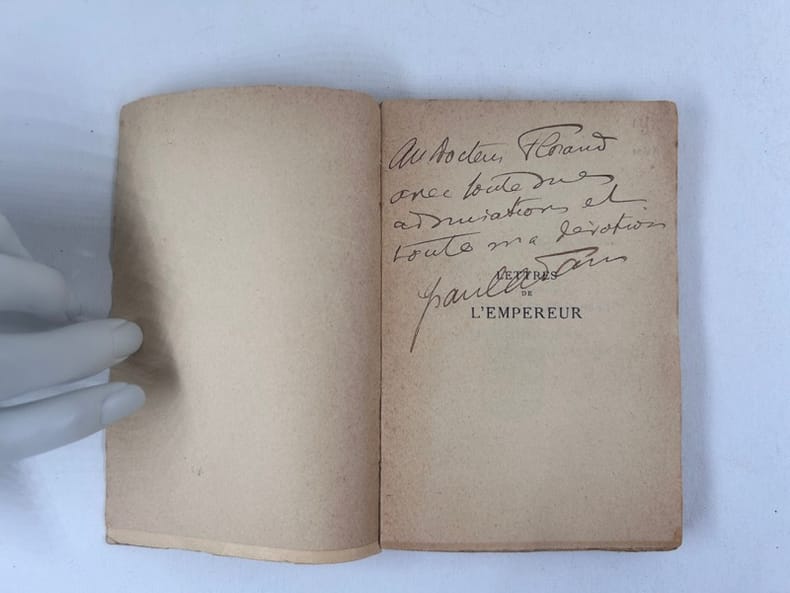 Au Docteur Floraud
avec toute mes
admirations et
toute ma dévotion
Paul Adam
LETTRES
DE
L'EMPEREUR